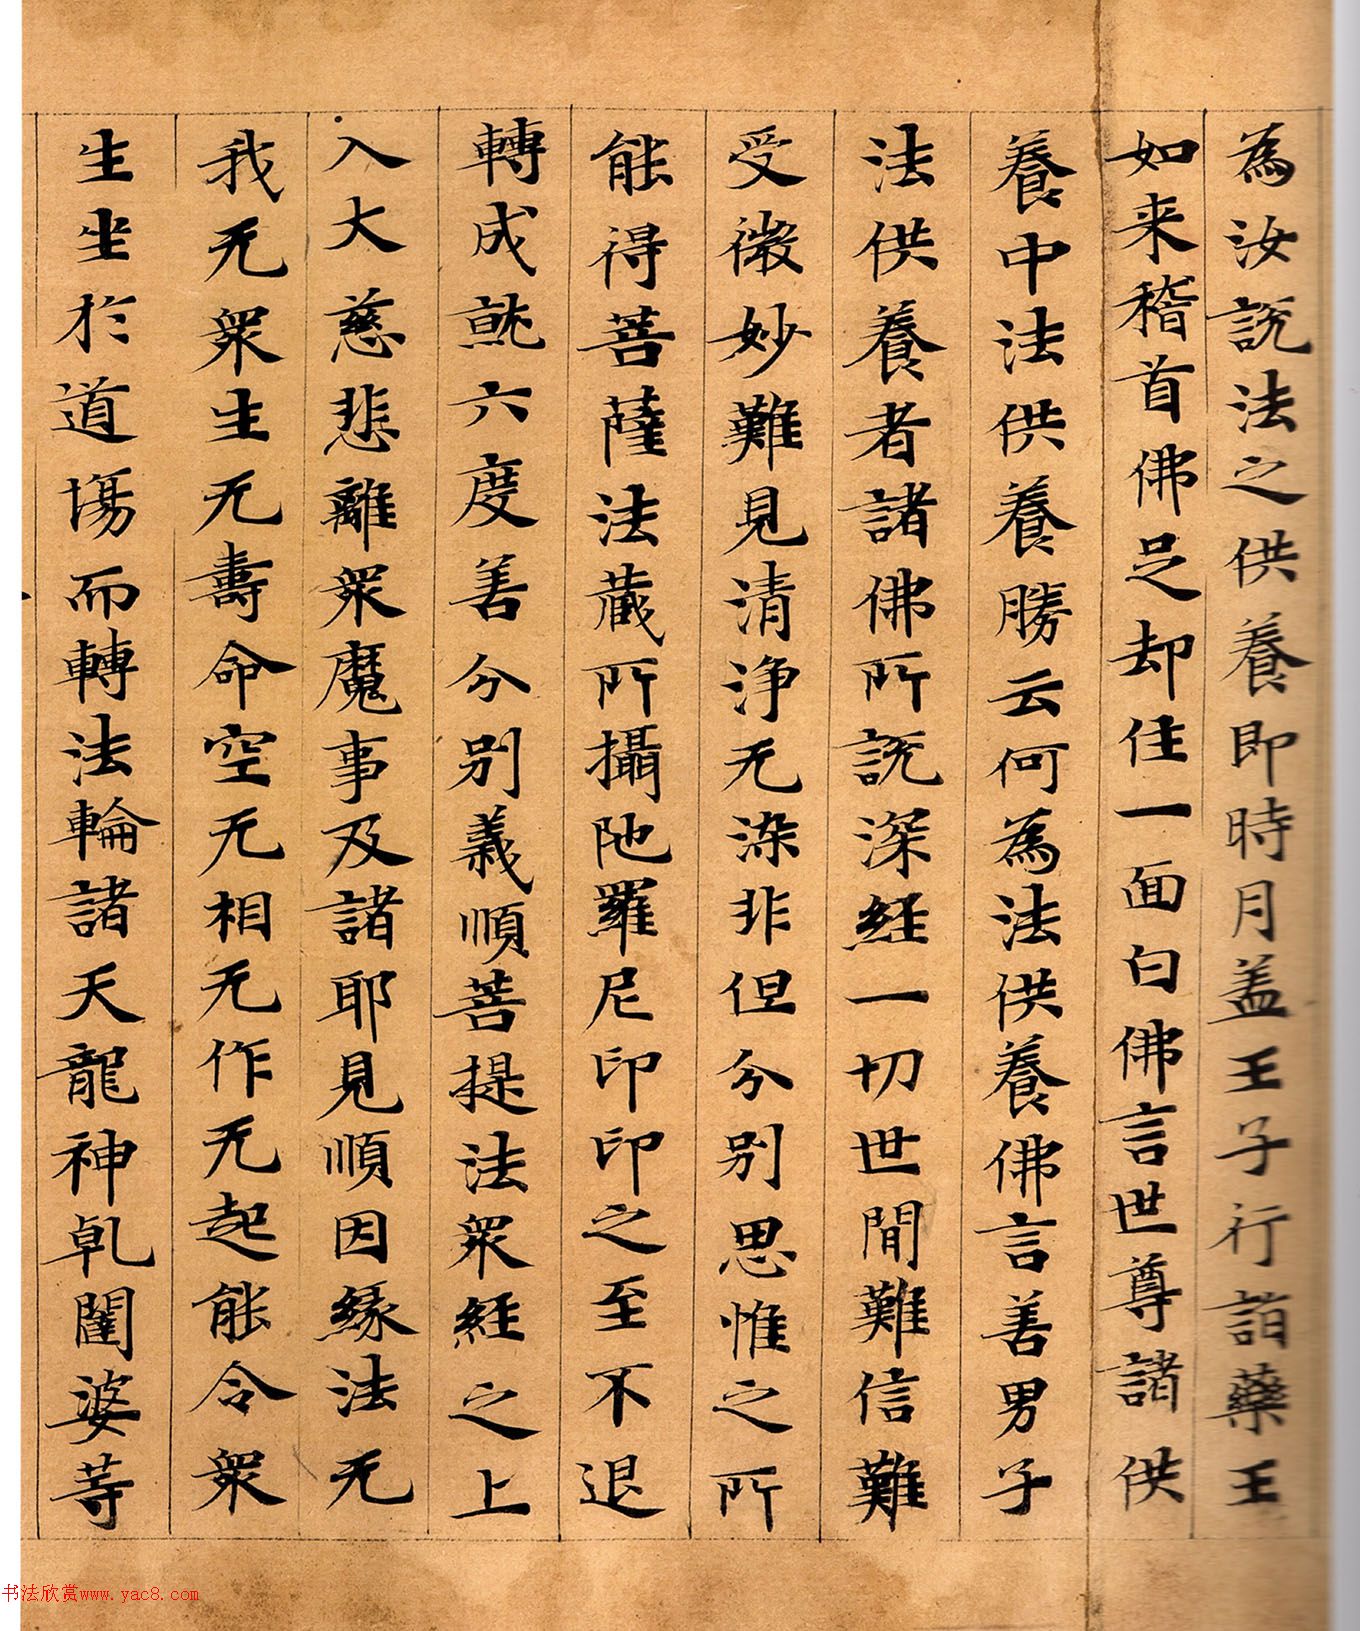 為汝說法之供養即時月盖王子行詣藥王
如来稽首佛足却住一面白佛言世尊諸供
養中法供養勝云何為法供養佛言善男子
法供養者諸佛所說深經一切世間難信難
受微妙難見清淨无染非但分別思惟之所
能得菩薩法藏所攝陁羅尼印印之至不退
轉成就六度善分別義順菩提法衆經之上
入大慈悲離衆魔事及諸耶見順因緣法无
我无衆生无壽命空无相无作无起能令衆
生坐於道場而轉法輪諸天龍神乹闥婆等
书法欣赏www.yac8.com